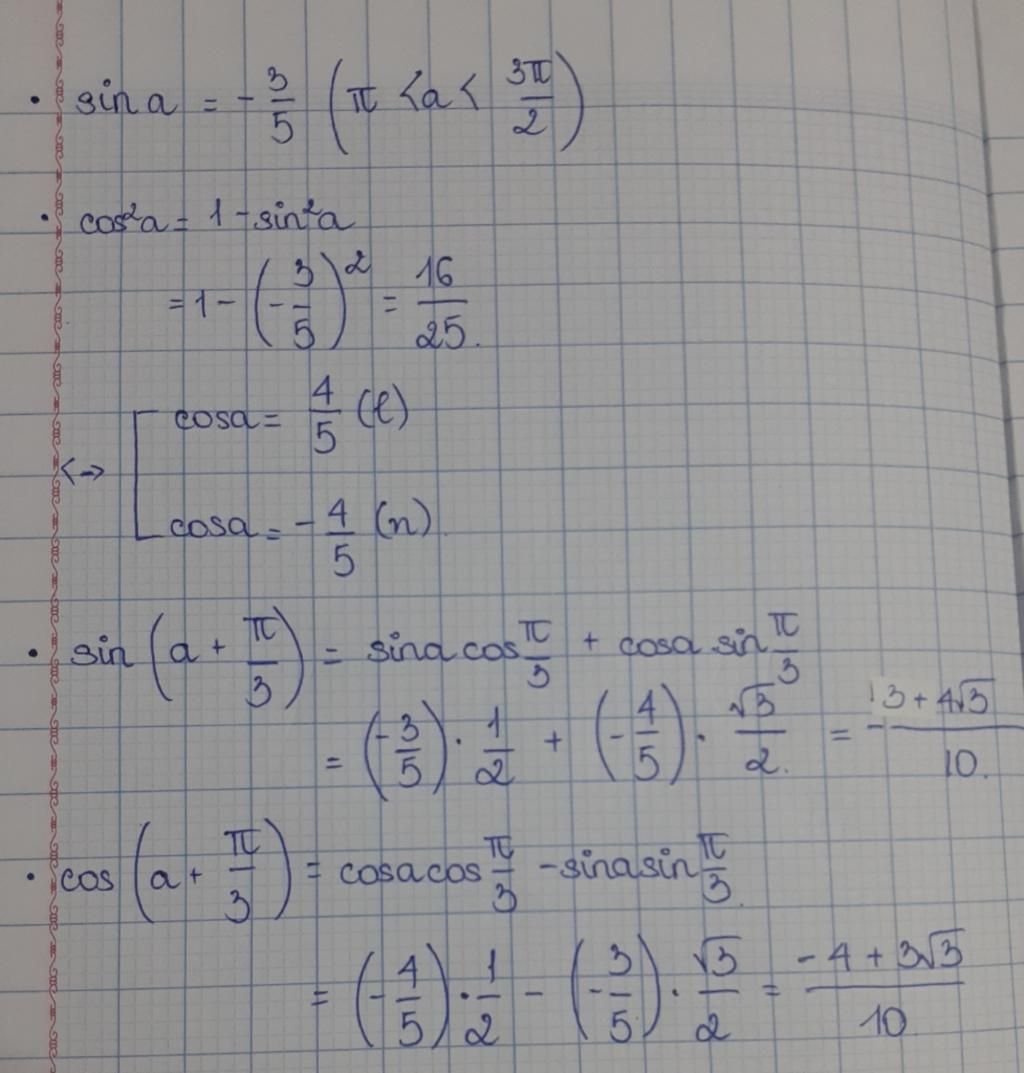 • sin a = - 3/5 (π < a < 3π/2)
• cos²a = 1 - sin²a
= 1 - (-3/5)² = 16/25.
<-> [ cosa = 4/5 (l)
cosa = - 4/5 (n)
• sin (a + π/3) = sina cos π/3 + cosa sin π/3
= (-3/5) . 1/2 + (-4/5) . √3/2. = - 3 + 4√3/10.
• cos (a + π/3) = cosa cos π/3 - sina sin π/3.
= (-4/5) . 1/2 - (-3/5) . √3/2 = -4 + 3√3/10